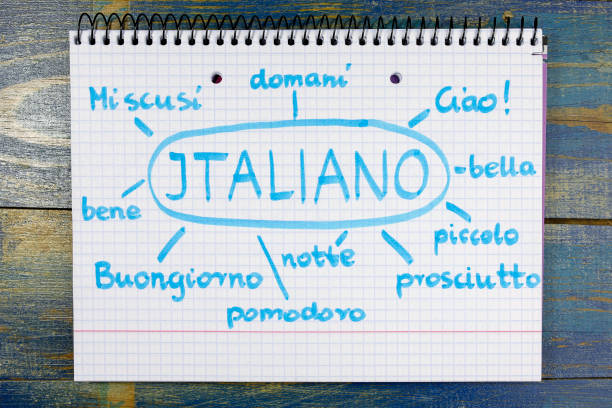 domani
Mi scusi
Ciao!
ITALIANO
bella
bene
piccolo
notte
Buongiorno
prosciutto
pomodoro